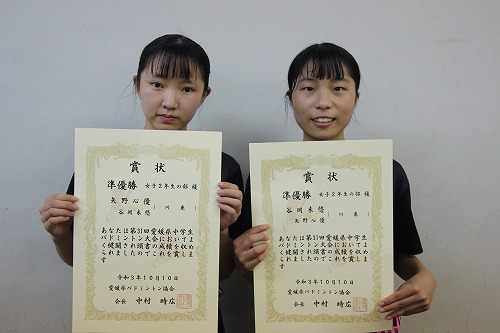 賞状
準優勝 女子2年生の部 複
矢野心優
谷岡未悠
川東
あなたは第31回愛媛県中学生
バドミントン大会において
よく健闘され頭書の成績を収め
られましたのでこれを賞し
ます
令和3年10月10日
愛媛県バドミントン協会
会長 中村 時広
賞状
準優勝 女子2年生の部 複
谷岡未悠
矢野心優
川東
あなたは第31回愛媛県中学生
バドミントン大会において
よく健闘され頭書の成績を収め
られましたのでこれを賞し
ます
令和3年10月10日
愛媛県バドミントン協会
会長 中村 時広